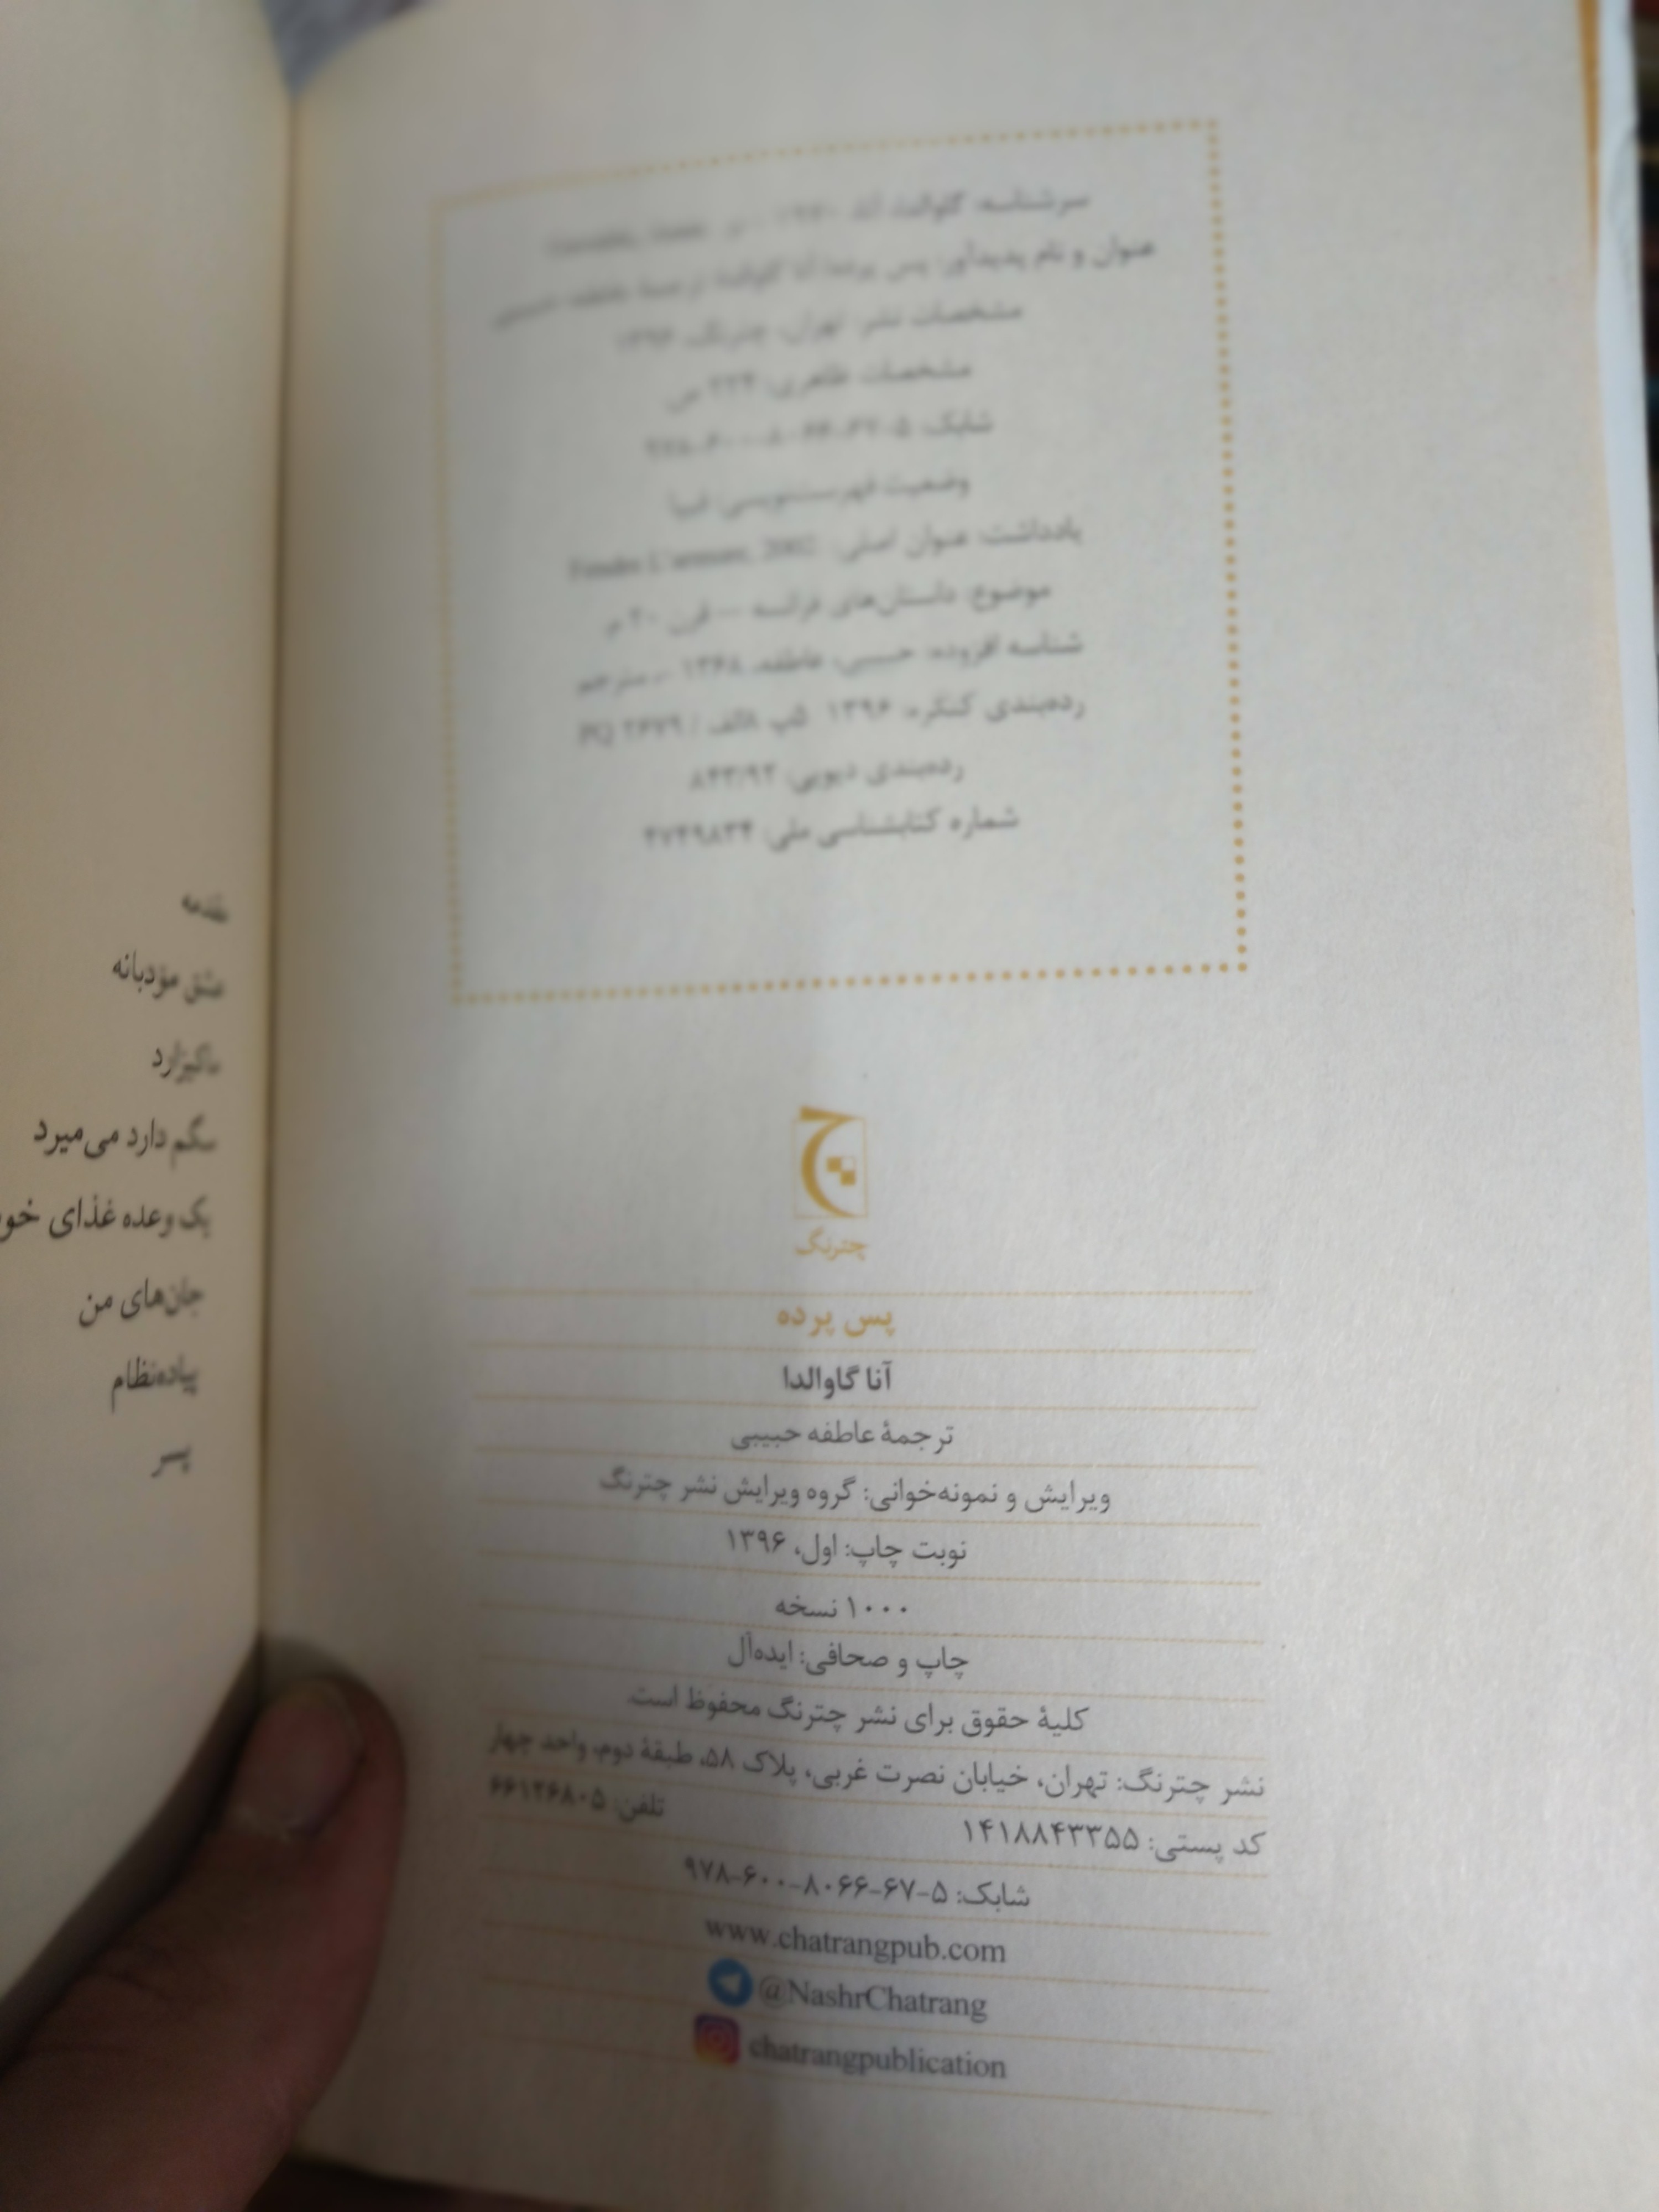 عنوان و نام پدیدآور: پس پرده/ آنا گاوالدا؛ ترجمهٔ عاطفه حبیبی
مشخصات نشر: تهران، چترنگ، ۱۳۹۶
مشخصات ظاهری: ۲۲۴ ص
شابک: ۵-۶۷-۸۰۶۶-۶۰۰-۹۷۸
وضعیت فهرست‌نویسی: فیپا
یادداشت: عنوان اصلی: 2002
موضوع: داستان‌های فرانسه — قرن ۲۰ م
شناسه افزوده: حبیبی، عاطفه، ۱۳۶۸ -، مترجم
رده‌بندی کنگره: ۱۳۹۶ /
رده‌بندی دیویی: ۸۴۳/۹۲
شماره کتابشناسی ملی: ۴۷۴۹۸۳۴
چترنگ
پس پرده
آنا گاوالدا
ترجمهٔ عاطفه حبیبی
ویرایش و نمونه‌خوانی: گروه ویرایش نشر چترنگ
نوبت چاپ: اول، ۱۳۹۶
۱۰۰۰ نسخه
چاپ و صحافی: ایده‌آل
کلیهٔ حقوق برای نشر چترنگ محفوظ است.
نشر چترنگ: تهران، خیابان نصرت غربی، پلاک ۵۸، طبقهٔ دوم، واحد چهار
کد پستی: ۱۴۱۸۸۴۳۳۵۵ تلفن: ۶۶۱۲۶۸۰۵
شابک: ۵-۶۷-۸۰۶۶-۶۰۰-۹۷۸
www.chatrangpub.com
@NashrChatrang
chatrangpublication
مقدمه
عشق مؤدبانه
سگم دارد می‌میرد
یک وعده غذای
جان‌های من
پیاده‌نظام
پسر